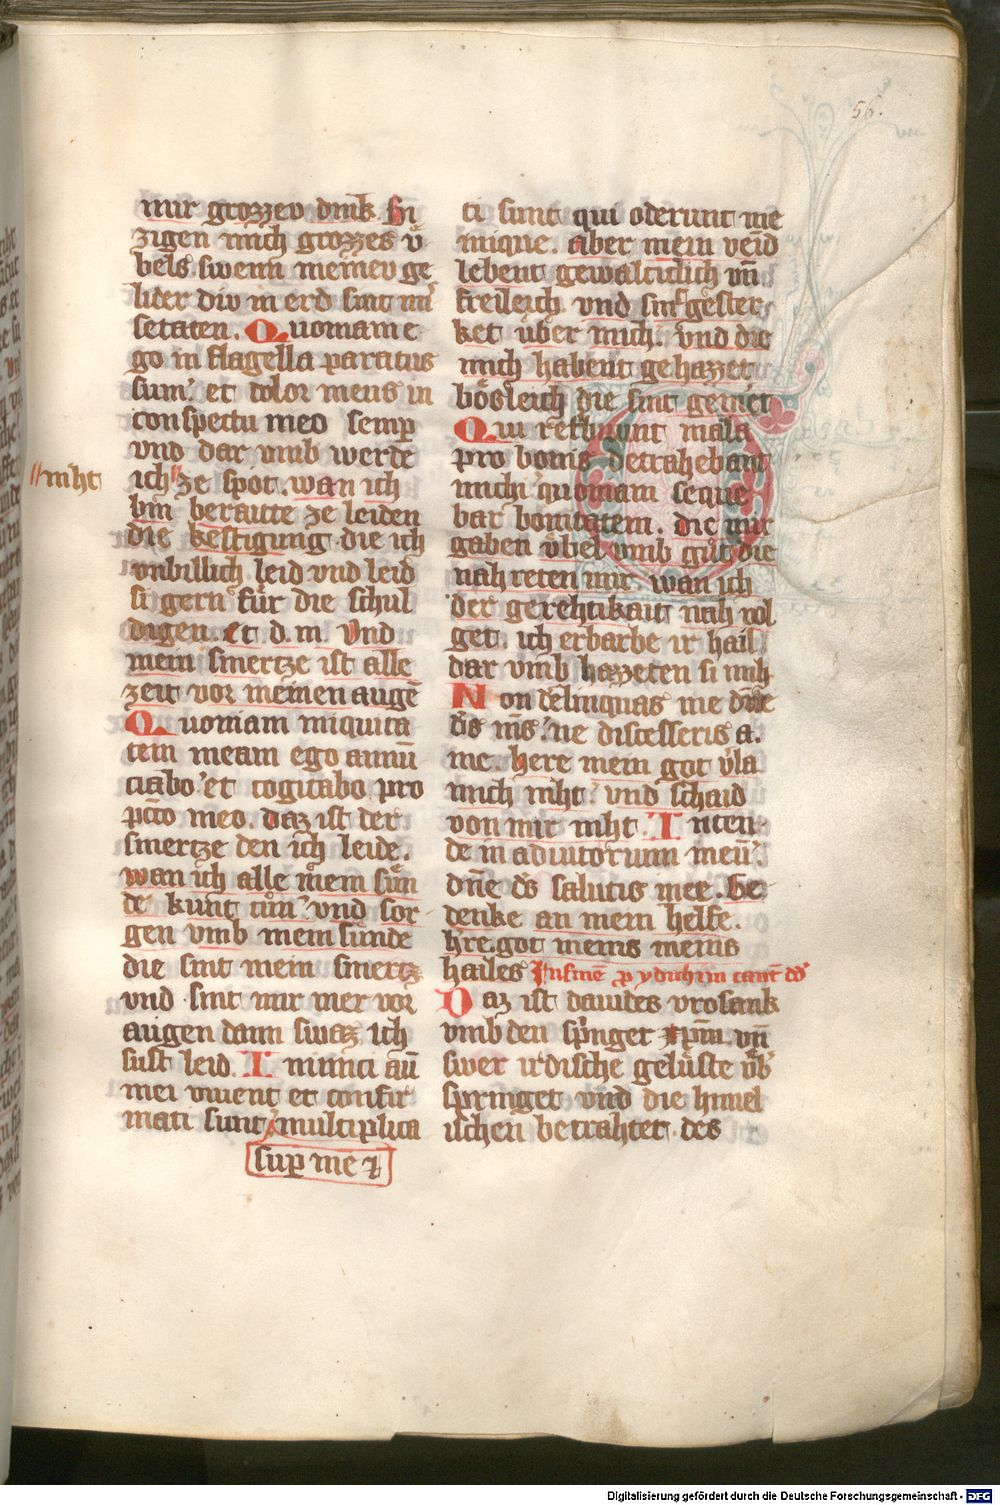 56.
mir grozzev dinͥk Si
zigen mich grozzes v̊
bels swenn meinev ge
lider div in erd sint mi
setaten. Quoniam e
go in flagella paratus
sum. et dolor meus in
conspectu meo semꝑ
vnd dar vmb werde
niht
ich ze spot. wan ich
bin beraitte ze leiden
die kestigung die ich
vnbillich leid vnd leid
si gern für die schul
digen. Et d. m. Vnd
mein smertze ist alle
zeit vor meinen augē
Quoniam iniquita
tem meam ego annū
ciabo. et cogitabo pro
pcc̄to meo. daz ist der
smertze den ich leide.
wan ich alle mein sün
de kunt tůn. vnd sor
gen vmb mein sünde
die sint mein smertz
vnd sint mir mer vor
augen dann swaz ich
sust leid. Inimici aū
mei viuent et confir
mati sunt multiplica
suꝑ me ⁊
ti sunt qui oderunt me
inique. aber mein veīd
lebent gewalticlich vn̄
freileich. vnd sint gester
ket uber mich. vnd die
mich habent gehazzet
bösleich die sint gemert
Qui retribunt mala
pro bonis detrahebant
michi quoniam seque
bar bonitatem. die mir
gaben v̈bel vmb gůt die
nah reten mir. wan ich
der gerehtikait nah vol
get. ich erbarbe ir hail
dar vmb hazzeten si mih
Non delinquas me dn̄e
ds̄ ms̄. ne discesseris a.
me. here mein got v̈la
mich niht. vnd schaid
von mir niht. Inten
de in adiutorium meū.
dn̄e ds̄ salutis mee. Ge
denke an mein helfe.
hre. got meins meins
hailes Jn finē ꝓ ydithun cant̄ dd̄
Daz ist dauides vrosank
vmb den springer xp̄m. vn̄
swer irdische gelüste v̈b
springet vnd die himel
ischen betrahtet. des
Digitalisierung gefördert durch die Deutsche Forschungsgemeinschaft - DFG